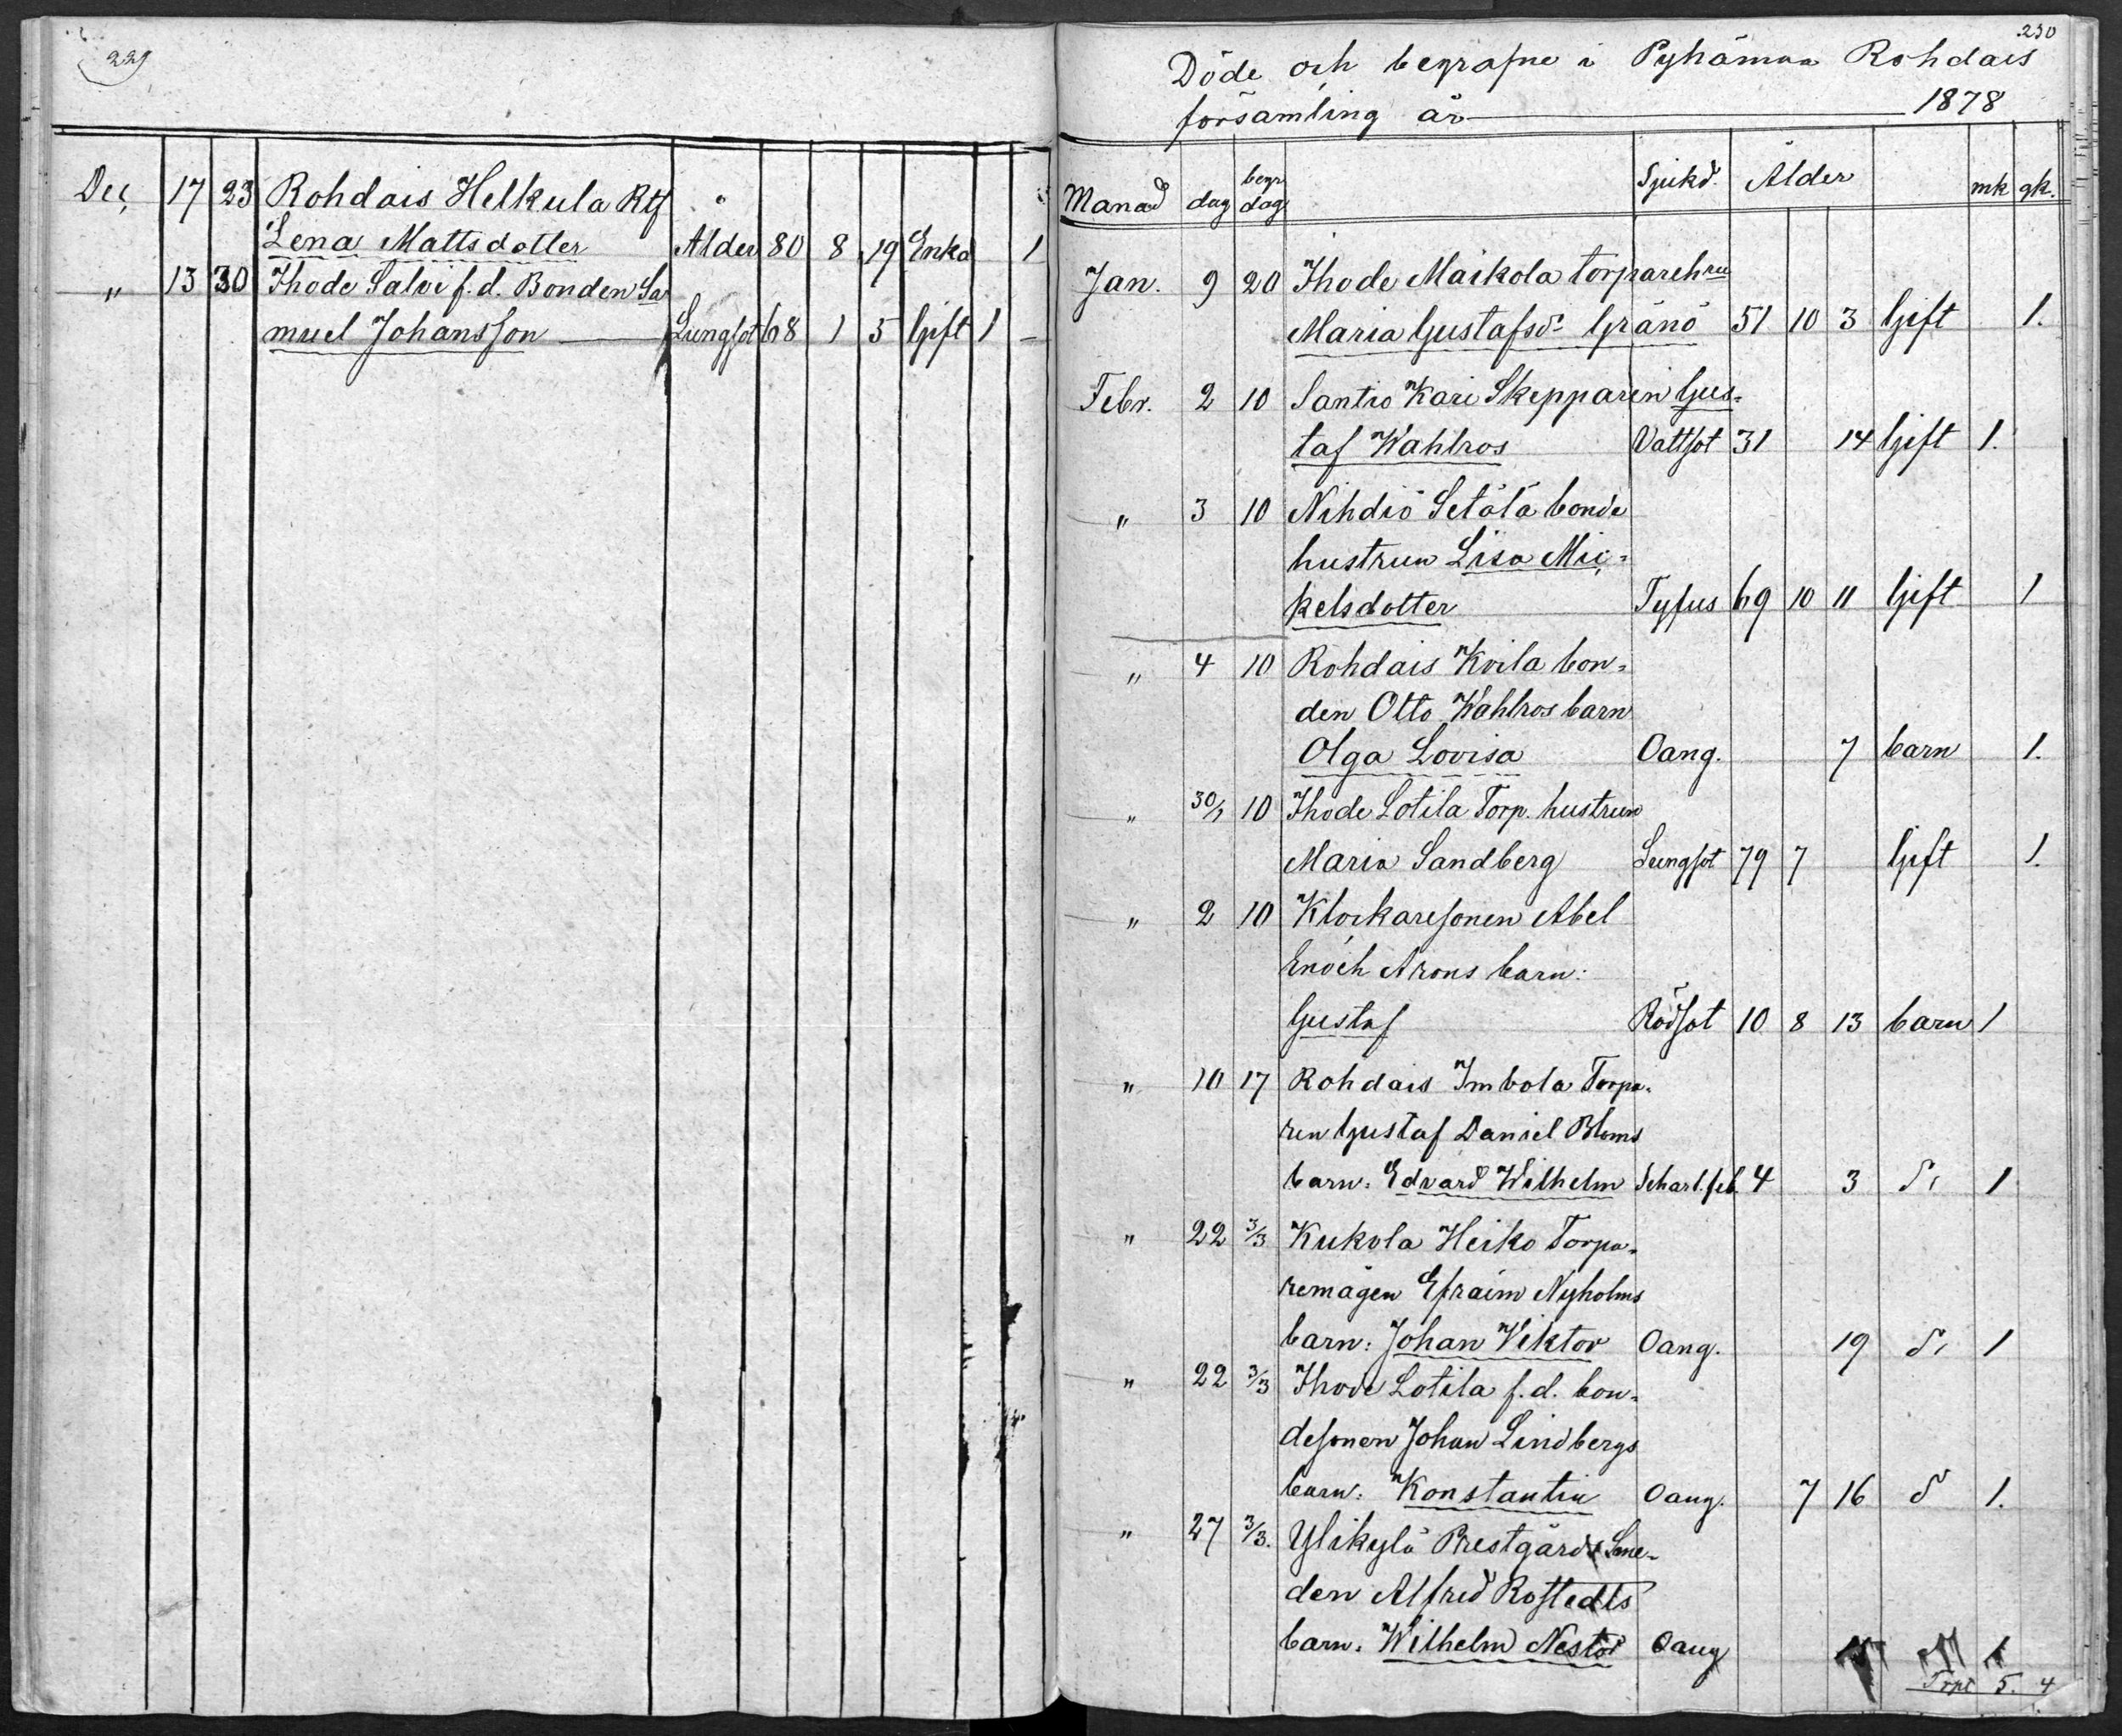 229
Dec, 17 23 Rohdais Helkula Rtf "
Lena Mattsdotter Alder 80 8 19 Enka 1
" 13 30 Ihode Salvi f.d. Bonden Sa
muel Johansson Lungsot 68 1 5 Gift 1 –
230
Döde och begrafne i Pyhämaa Rohdais
församling år 1878
Manad dag begr dag Sjukd. Ålder mk qk.
Jan. 9 20 Ihode Maikola torparehru
Maria Gustafsd: Gränö 51 10 3 Gift 1.
Febr. 2 10 Santio Kari Skepparen Gus-
taf Wahlros Vattsot 31 14 Gift 1.
" 3 10 Nihdiö Setälä bonde
hustrun Lisa Mic-
kelsdotter Tyfus 69 10 11 Gift 1
" 4 10 Rohdais Kvila bon-
den Otto Wahlros barn
Olga Lovisa Oang. 7 barn 1.
" 30/1 10 Ihode Lotila Torp. hustrun
Maria Sandberg Lungsot 79 7 Gift 1.
" 2 10 Klockaresonen Abel
Enoch Arons barn:
Gustaf Rödsot 10 8 13 barn 1
" 10 17 Rohdais Imbola Torpa-
ren Gustaf Daniel Bloms
barn: Edvard Wilhelm Scharl.feb. 4 3 d: 1
" 22 3/3 Kukola Heiko Torpa-
remågen Efraim Nyholms
barn: Johan Viktor Oang. 19 d: 1
" 22 3/3 Ihode Lotila f.d. bon-
desonen Johan Lindbergs
barn: Konstantin Oang. 7 16 d 1.
" 27 3/3. Ylikylä Prestgårds Sme-
den Alfred Rostedts
barn: Wilhelm Nestor Oang 1
Trpt 5. 4